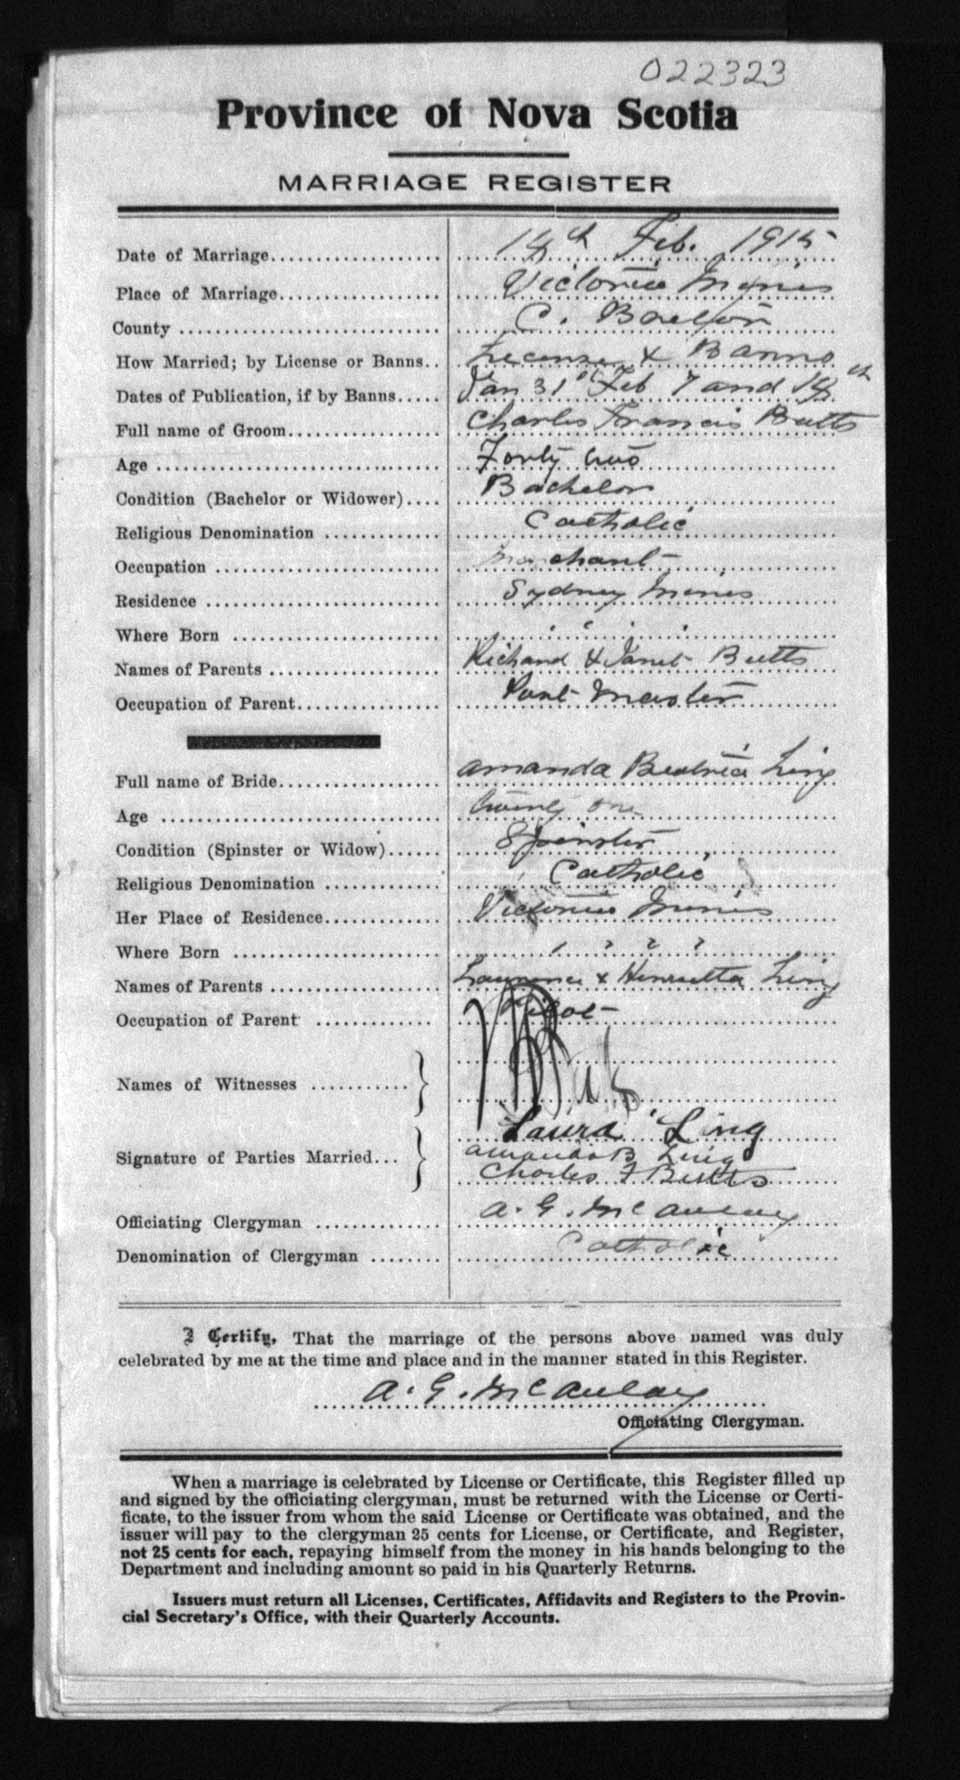 022323
Province of Nova Scotia
MARRIAGE REGISTER
Date of Marriage 14th Feb. 1915
Place of Marriage Victoria Mines
County C. Breton
How Married; by License or Banns.. License & Banns
Dates of Publication, if by Banns Jan 31st Feb 7 and 14th
Full name of Groom Charles Francis Butts
Age Forty two
Condition (Bachelor or Widower) Bachelor
Religious Denomination Catholic
Occupation Merchant
Residence Sydney Mines
Where Born " " " "
Names of Parents Richard & Janet Butts
Occupation of Parent Post Master
Full name of Bride Amanda Beatrice Ling
Age twenty one
Condition (Spinster or Widow) Spinster
Religious Denomination Catholic
Her Place of Residence Victoria Mines
Where Born " " " "
Names of Parents Lawrence & Henrietta Ling
Occupation of Parent Pilot
Names of Witnesses
Laura Ling
Signature of Parties Married... Amanda B Ling
Charles F Butts
Officiating Clergyman A. G. McAulay
Denomination of Clergyman Catholic
I Certify, That the marriage of the persons above named was duly
celebrated by me at the time and place and in the manner stated in this Register.
A. G. McAulay
Officiating Clergyman.
When a marriage is celebrated by License or Certificate, this Register filled up
and signed by the officiating clergyman, must be returned with the License or Certi-
ficate, to the issuer from whom the said License or Certificate was obtained, and the
issuer will pay to the clergyman 25 cents for License, or Certificate, and Register,
not 25 cents for each, repaying himself from the money in his hands belonging to the
Department and including amount so paid in his Quarterly Returns.
Issuers must return all Licenses, Certificates, Affidavits and Registers to the Provin-
cial Secretary's Office, with their Quarterly Accounts.